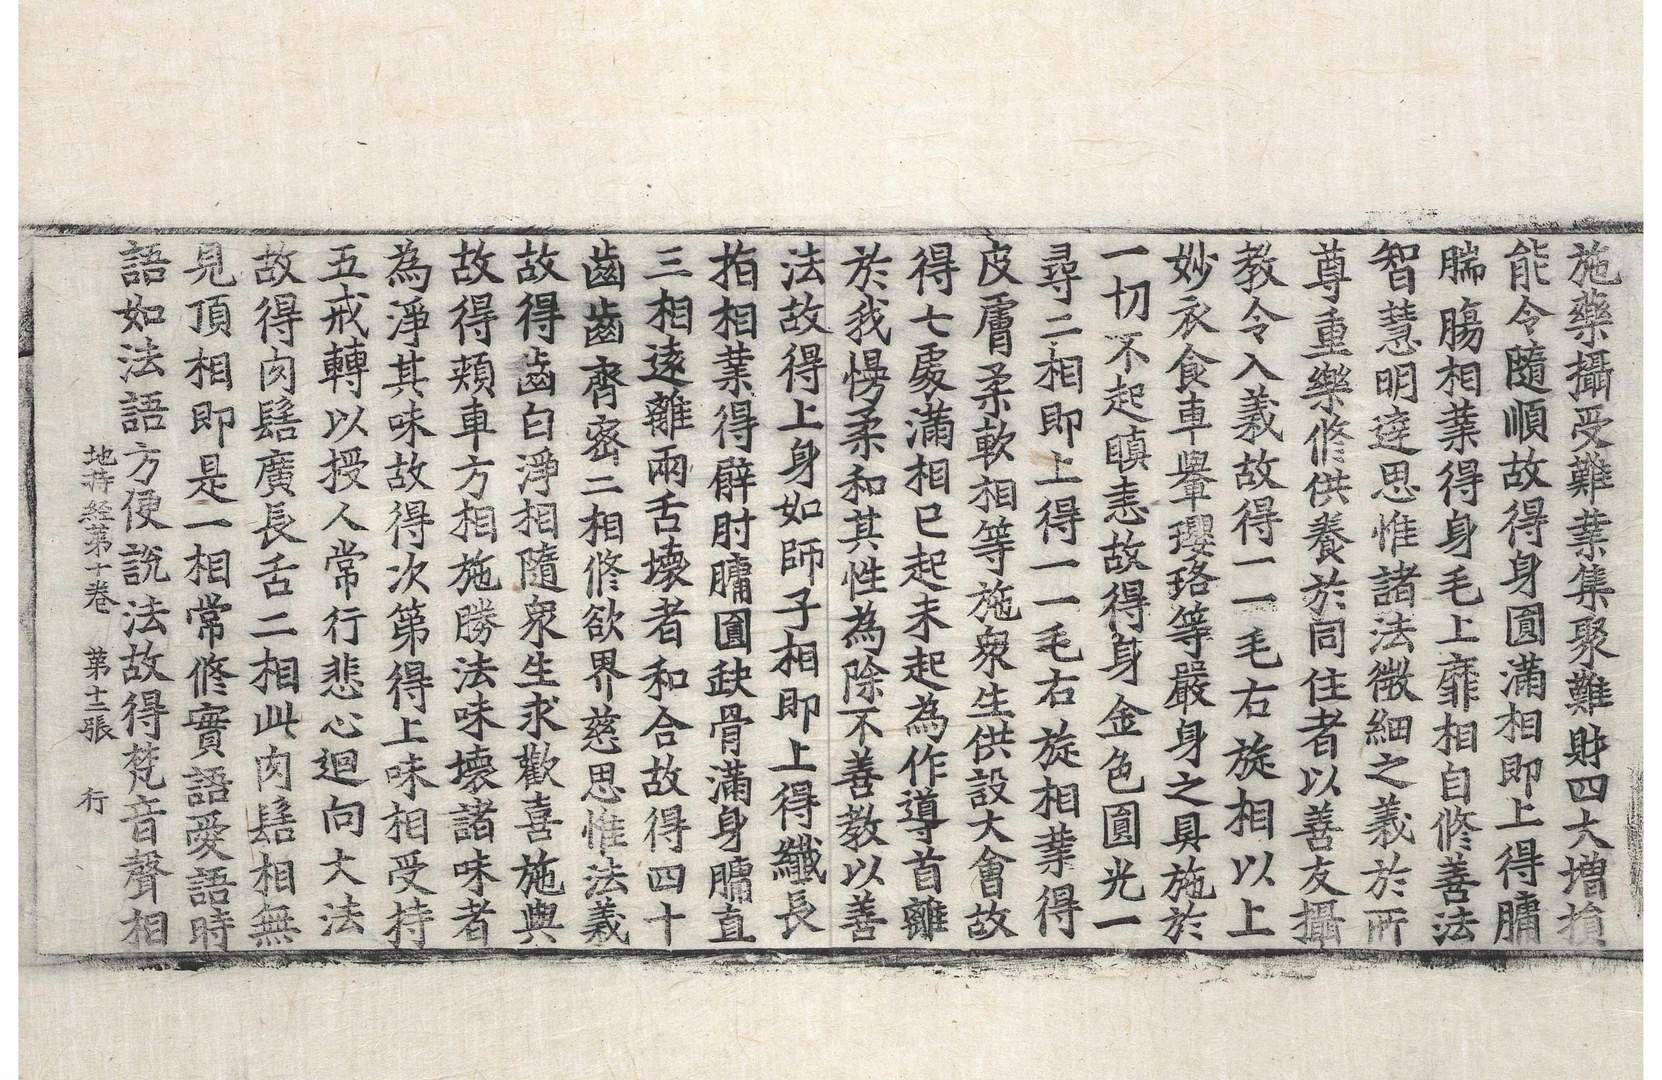 施藥攝受難業集聚難財四大增損
能令隨順故得身圓滿相即上得𦟛
腨膓相業得身毛上靡相自修善法
智慧明達思惟諸法微細之義於所
尊重樂修供養於同住者以善友攝
教令入義故得一一毛右旋相以上
妙衣食車轝瓔珞等嚴身之具施於
一切不起瞋恚故得身金色圓光一
尋二相即上得一一毛右旋相業得
皮膚柔軟相等施衆生供設大會故
得七處滿相已起未起為作導首離
於我慢柔和其性為除不善教以善
法故得上身如師子相即上得纖長
指相業得髆肘𦟛圓缺骨滿身𦟛直
三相遠離兩舌壞者和合故得四十
齒齒齊密二相修欲界慈思惟法義
故得齒白淨相隨衆生求歡喜施與
故得頰車方相施勝法味壞諸味者
為淨其味故得次第得上味相受持
五戒轉以授人常行悲心迴向大法
故得肉髻廣長舌二相此肉髻相無
見頂相即是一相常修實語愛語時
語如法語方便說法故得梵音聲相
地持経第十卷 第十二張 行